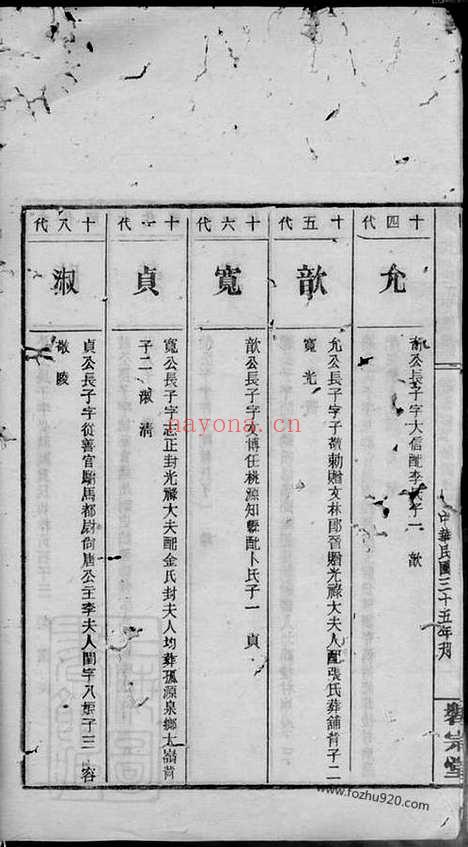 十四代
允
公長子字大信配李氏子一 歆
十五代
歆
允公長子字子敬勅贈文林郎晉贈光祿大夫人配張氏葬舖背子二
寬 光
十六代
寬
歆公長子字文博任桃源知縣配卜氏子一 貞
十七代
貞
寬公長子字志正封光祿大夫配金氏封夫人均葬孤源泉鄉大嶺背
子二 淑 清
十八代
淑
貞公長子字從善官駙馬都尉尚唐公主李夫人閨字八娘子三 容
敵 陵
中華民國三十五年 月
宗堂
nayona.cn
www.fozhu920.com